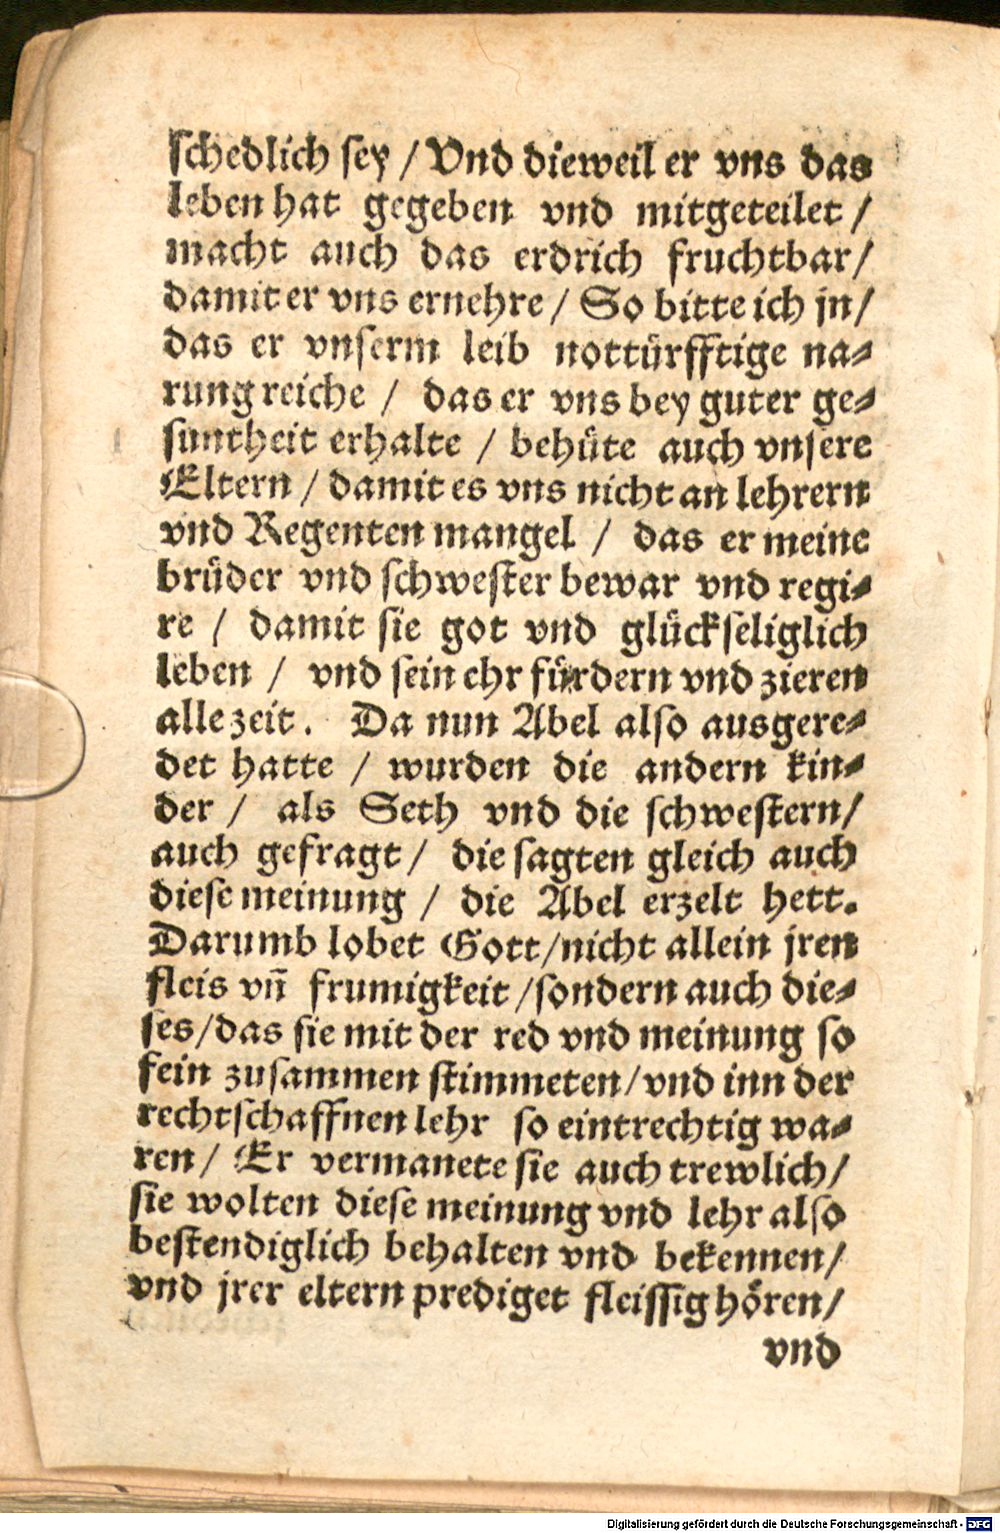 schedlich sey / Vnd dieweil er vns das
leben hat gegeben vnd mitgeteilet /
macht auch das erdrich fruchtbar /
damit er vns ernehre / So bitte ich jn /
das er vnserm leib nottürfftige na⸗
rung reiche / das er vns bey guter ge⸗
suntheit erhalte / behüte auch vnsere
Eltern / damit es vns nicht an lehrern
vnd Regenten mangel / das er meine
brüder vnd schwester bewar vnd regi⸗
re / damit sie got vnd glückseliglich
leben / vnd sein ehr fürdern vnd zieren
alle zeit. Da nun Abel also ausgere⸗
det hatte / wurden die andern kin⸗
der / als Seth vnd die schwestern /
auch gefragt / die sagten gleich auch
diese meinung / die Abel erzelt hett.
Darumb lobet Gott / nicht allein jren
fleis vn̄ frumigkeit / sondern auch die⸗
ses / das sie mit der red vnd meinung so
fein zusammen stimmeten / vnd inn der
rechtschaffnen lehr so eintrechtig wa⸗
ren / Er vermanete sie auch trewlich /
sie wolten diese meinung vnd lehr also
bestendiglich behalten vnd bekennen /
vnd jrer eltern prediget fleissig hören /
vnd
Digitalisierung gefördert durch die Deutsche Forschungsgemeinschaft - DFG